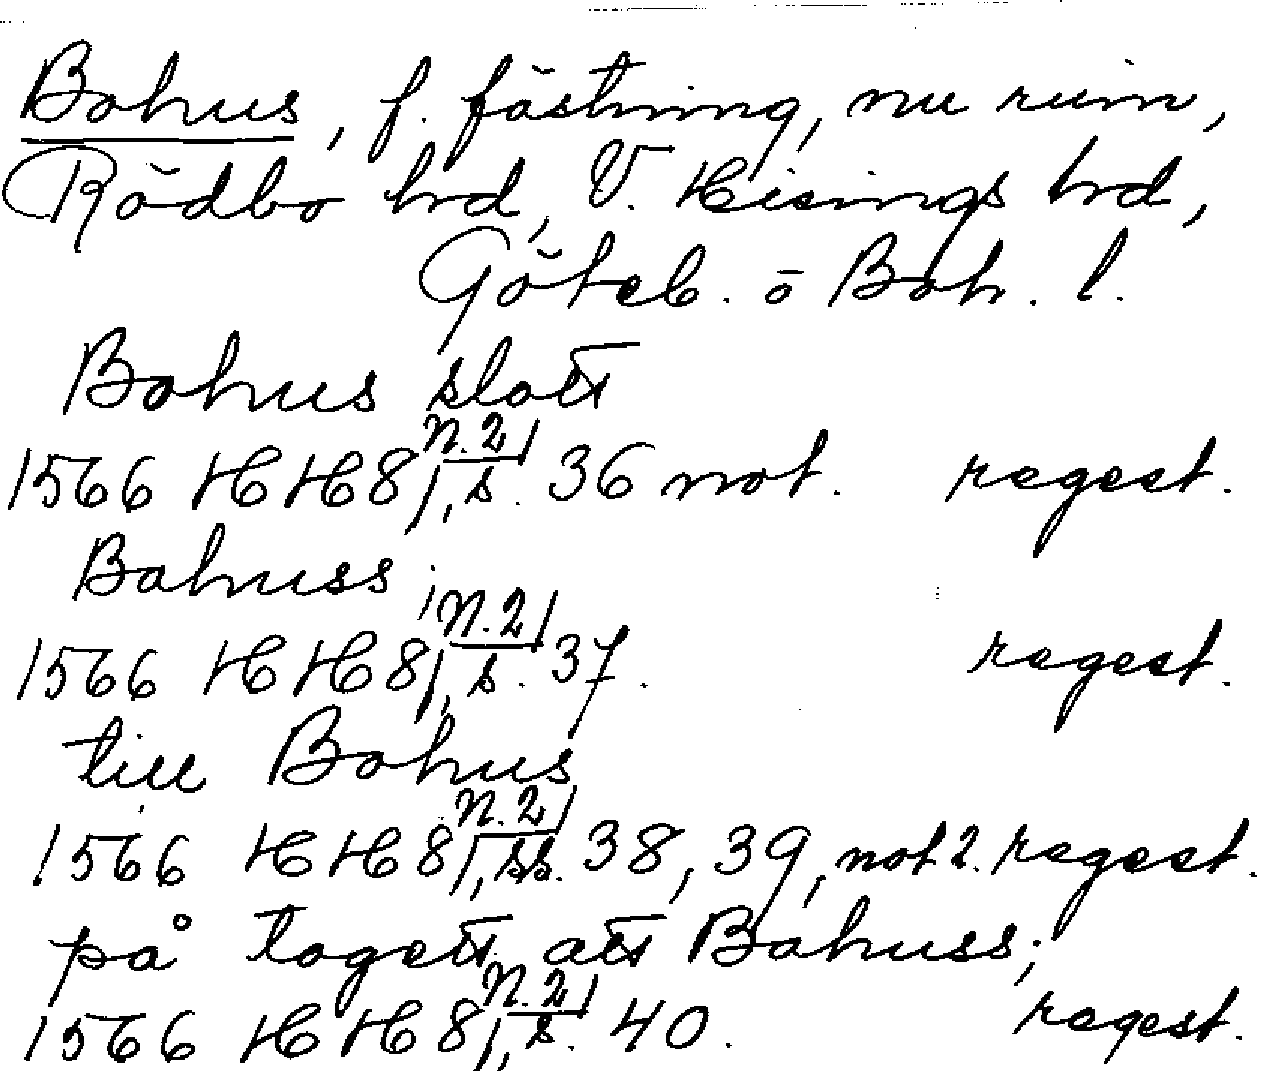 Bohus, f. fästning, nu ruin,
Rödbo hrd, V. Hisings hrd,
Göteb. o Boh. l.
Bohus slott
1566 HH 8, N. 2, s. 36 not. regest.
Bahuss;
1566 HH 8, N. 2, s. 37. regest.
till Bohus
1566 HH 8, N. 2, ss. 38, 39, not 2. regest.
på togett att Bahuss;
1566 HH 8, N. 2, s. 40. regest.